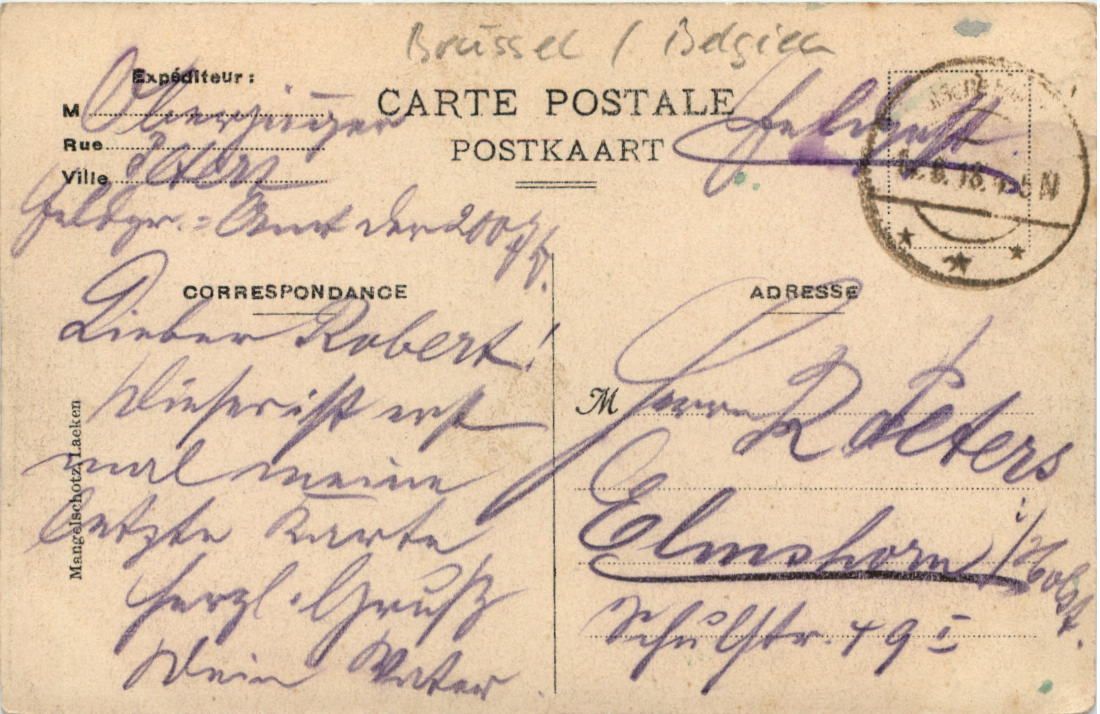 Brüssel / Belgien
Expéditeur:
M Oberjäger
Rue Peters
Ville
Feldpr.=Amt der 200 J/D.
CARTE POSTALE
POSTKAART
Feldpost.
8. 18. 4-5 N
CORRESPONDANCE
Lieber Robert!
Dieser ist erst
mal meine
letzte Karte
herzl. Gruß
Dein Vater
Mangelschotz, Laeken
ADRESSE
M Herrn R Peters
Elmshorn i/Holst.
Schulstr. 49 I